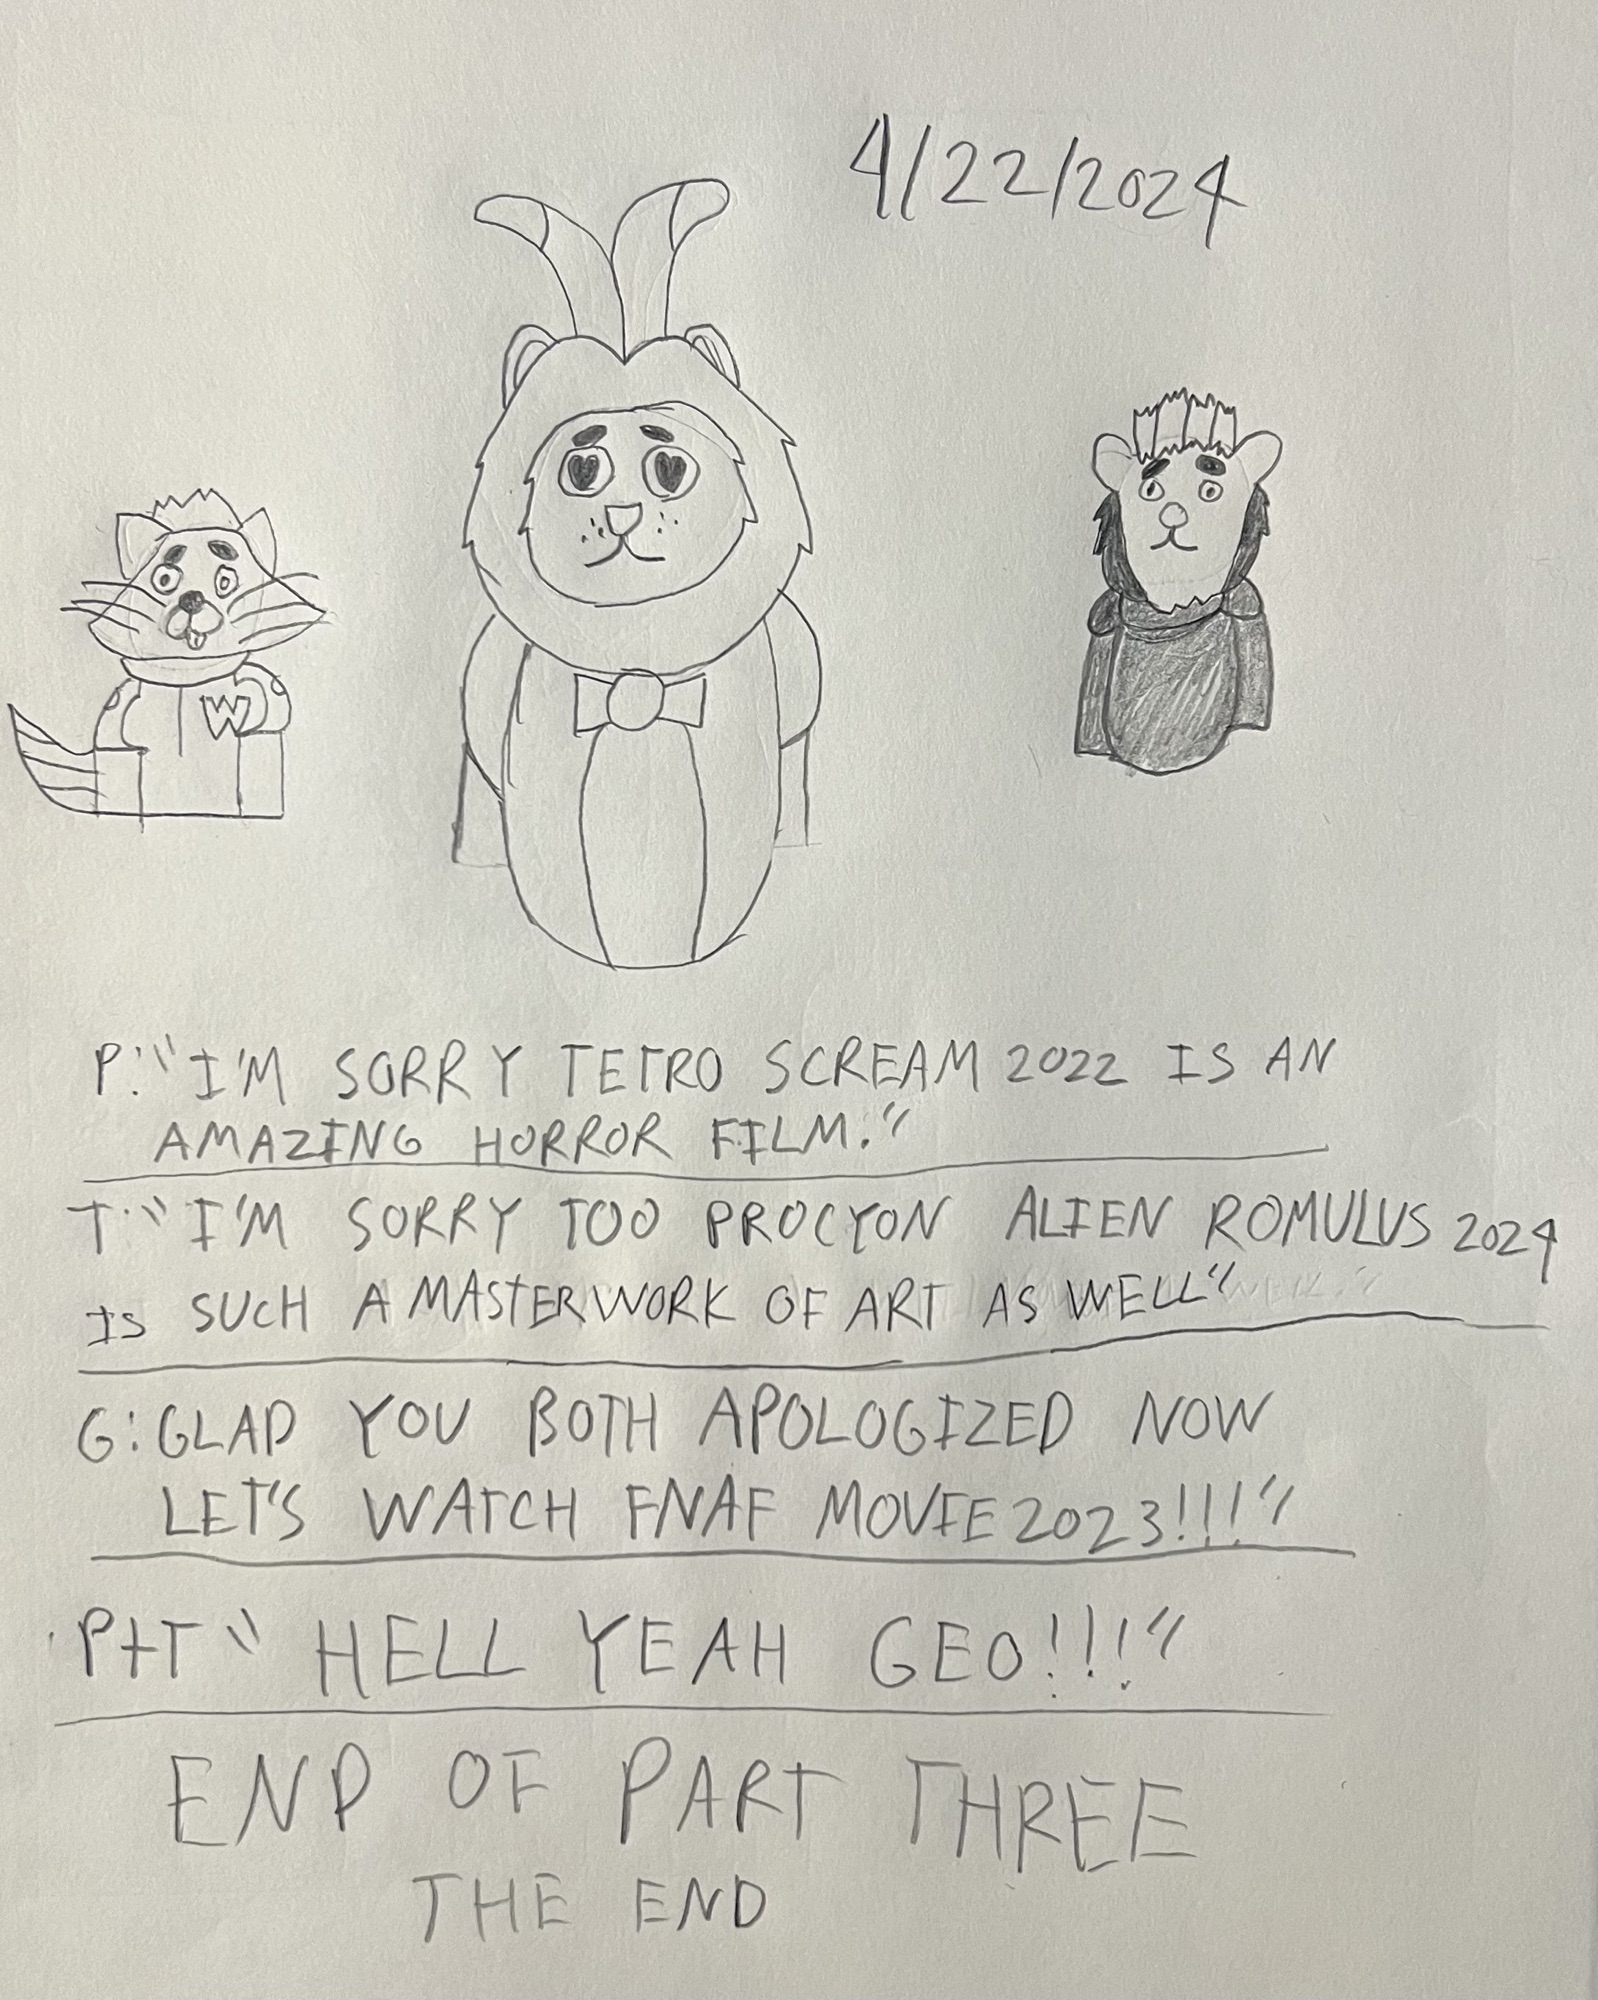 4/22/2024
W
P: "I'M SORRY TETRO SCREAM 2022 IS AN
AMAZING HORROR FILM."
T: "I'M SORRY TOO PROCYON ALIEN ROMULUS 2024
IS SUCH A MASTERWORK OF ART AS WELL"
G: GLAD YOU BOTH APOLOGIZED NOW
LET'S WATCH FNAF MOVIE 2023!!!"
P+T "HELL YEAH GEO!!!"
END OF PART THREE
THE END